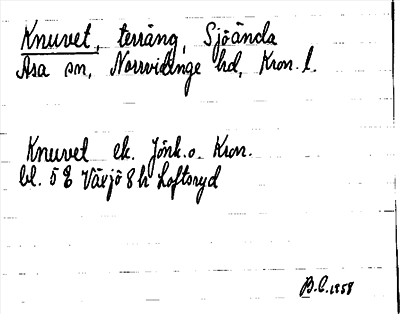 Knuvet, terräng, Sjöända
Asa sn, Norrvidinge hd, Kron. l.
Knuvet ek. Jönk. o. Kron.
bl. 5 Växjö 8 h Loftsryd
B.C. 1958